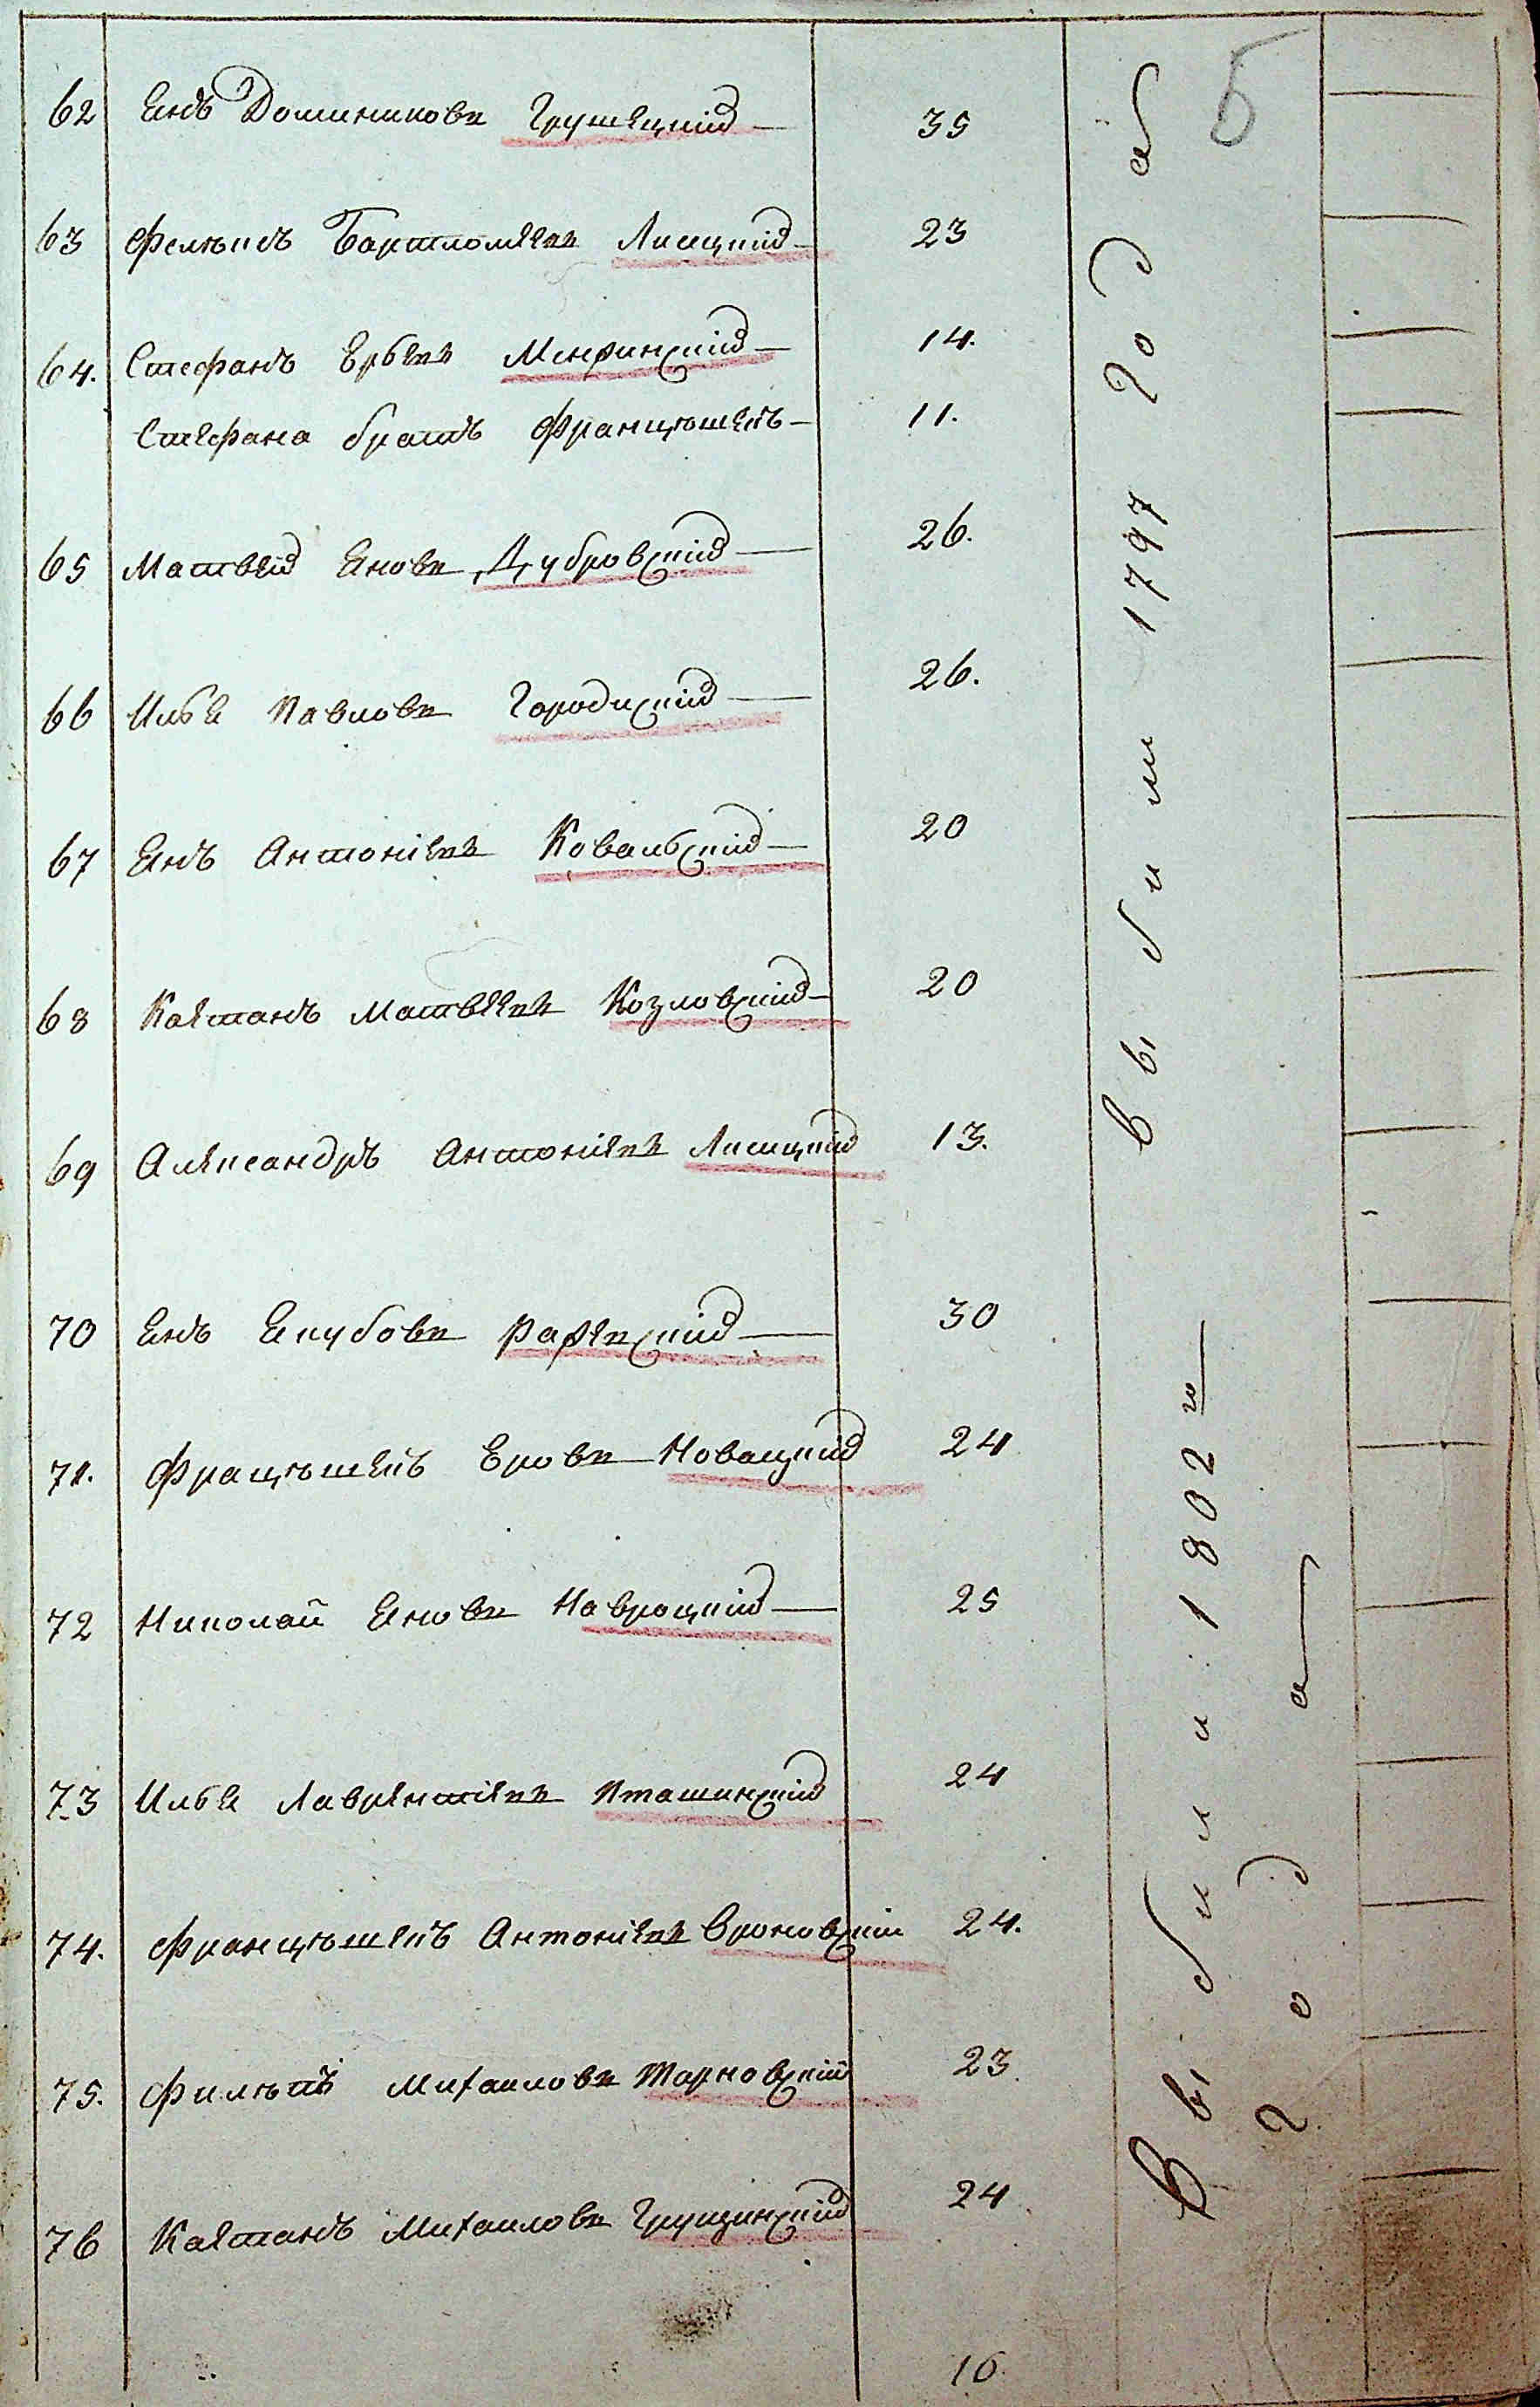 5
62 Янъ Доминиковъ Грушецкій 35
63 Феликсъ Бартломѣевъ Лисицкій 23
64. Стефанъ Юрьевъ 14.
Стефана братъ Францышекъ 11.
65 Матвей Яновъ Дубровскій 26.
66 Илья Павловъ Городискій 26.
67 Янъ Антоніевъ Ковальскій 20
68 Каетанъ Матвеевъ Козловскій 20
69 Александръ Антоніевъ Лисицкій 13.
70 Янъ Якубовъ 30
71. Францышекъ Новацкій 24
72 Николай Яновъ Навроцкій 25
73 Илья Лаврентіевъ Пташинскій 24
74. Францышекъ Антоніевъ Вроновскій 24.
75. Филипъ Михаиловъ Тарновскій 23.
76 Каетанъ Михаиловъ Грущинскій 24
16
1797 года
Выбыли 1802го
года